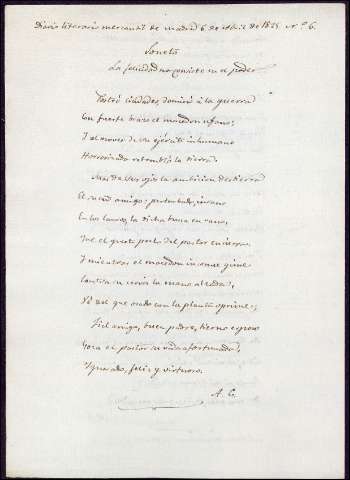 Diario literario mercantil de Madrid 6 de Abril de 1825 n.º 6.
Soneto
La felicidad no consiste en el poder
Postró ciudades, dominó á la guerra
Con fuerte brazo el macedon ufano;
Y al mover de su ejército inhumano
Horrorizada retembló la tierra.
Mas de sus ojos la ambicion destierra
El sueño amigo: perturbado, insano
En los lauros, la dicha busca en vano,
Que el quieto pecho del pastor encierra.
Y mientras el macedon gime
la mano
del que osado con la planta oprime;
Fiel amigo, buen padre, tierno esposo
Goza el pastor su vida afortunada,
Ignorado, feliz y virtuoso.
A. G.